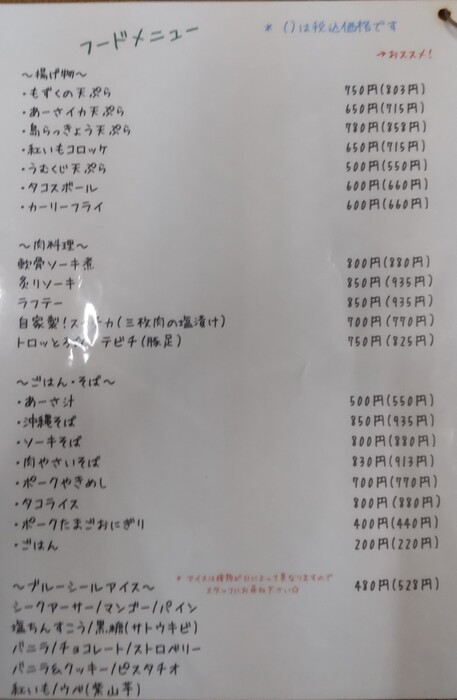 フードメニュー
* ()は税込価格です
→おススメ!
〜揚げ物〜
・もずくの天ぷら 750円(803円)
・あーさイカ天ぷら 650円(715円)
・島らっきょう天ぷら 780円(858円)
・紅いもコロッケ 650円(715円)
・うむくじ天ぷら 500円(550円)
・タコスボール 600円(660円)
・カーリーフライ 600円(660円)
〜肉料理〜
軟骨ソーキ煮 800円(880円)
炙りソーキ 850円(935円)
ラフテー 850円(935円)
自家製!ス カ(三枚肉の塩漬け) 700円(770円)
トロッと テビチ(豚足) 750円(825円)
〜ごはん・そば〜
・あーさ汁 500円(550円)
・沖縄そば 850円(935円)
・ソーキそば 800円(880円)
・肉やさいそば 830円(913円)
・ポークやきめし 700円(770円)
・タコライス 800円(880円)
・ポークたまごおにぎり 400円(440円)
・ごはん 200円(220円)
〜ブルーシールアイス〜 480円(528円)
* アイスは種類が日によって異なりますので
スタッフにお尋ね下さい☆
シークアーサー/マンゴー/パイン
塩ちんすこう/黒糖(サトウキビ)
バニラ/チョコレート/ストロベリー
バニラ&クッキー/ピスタチオ
紅いも/ウベ(紫山芋)